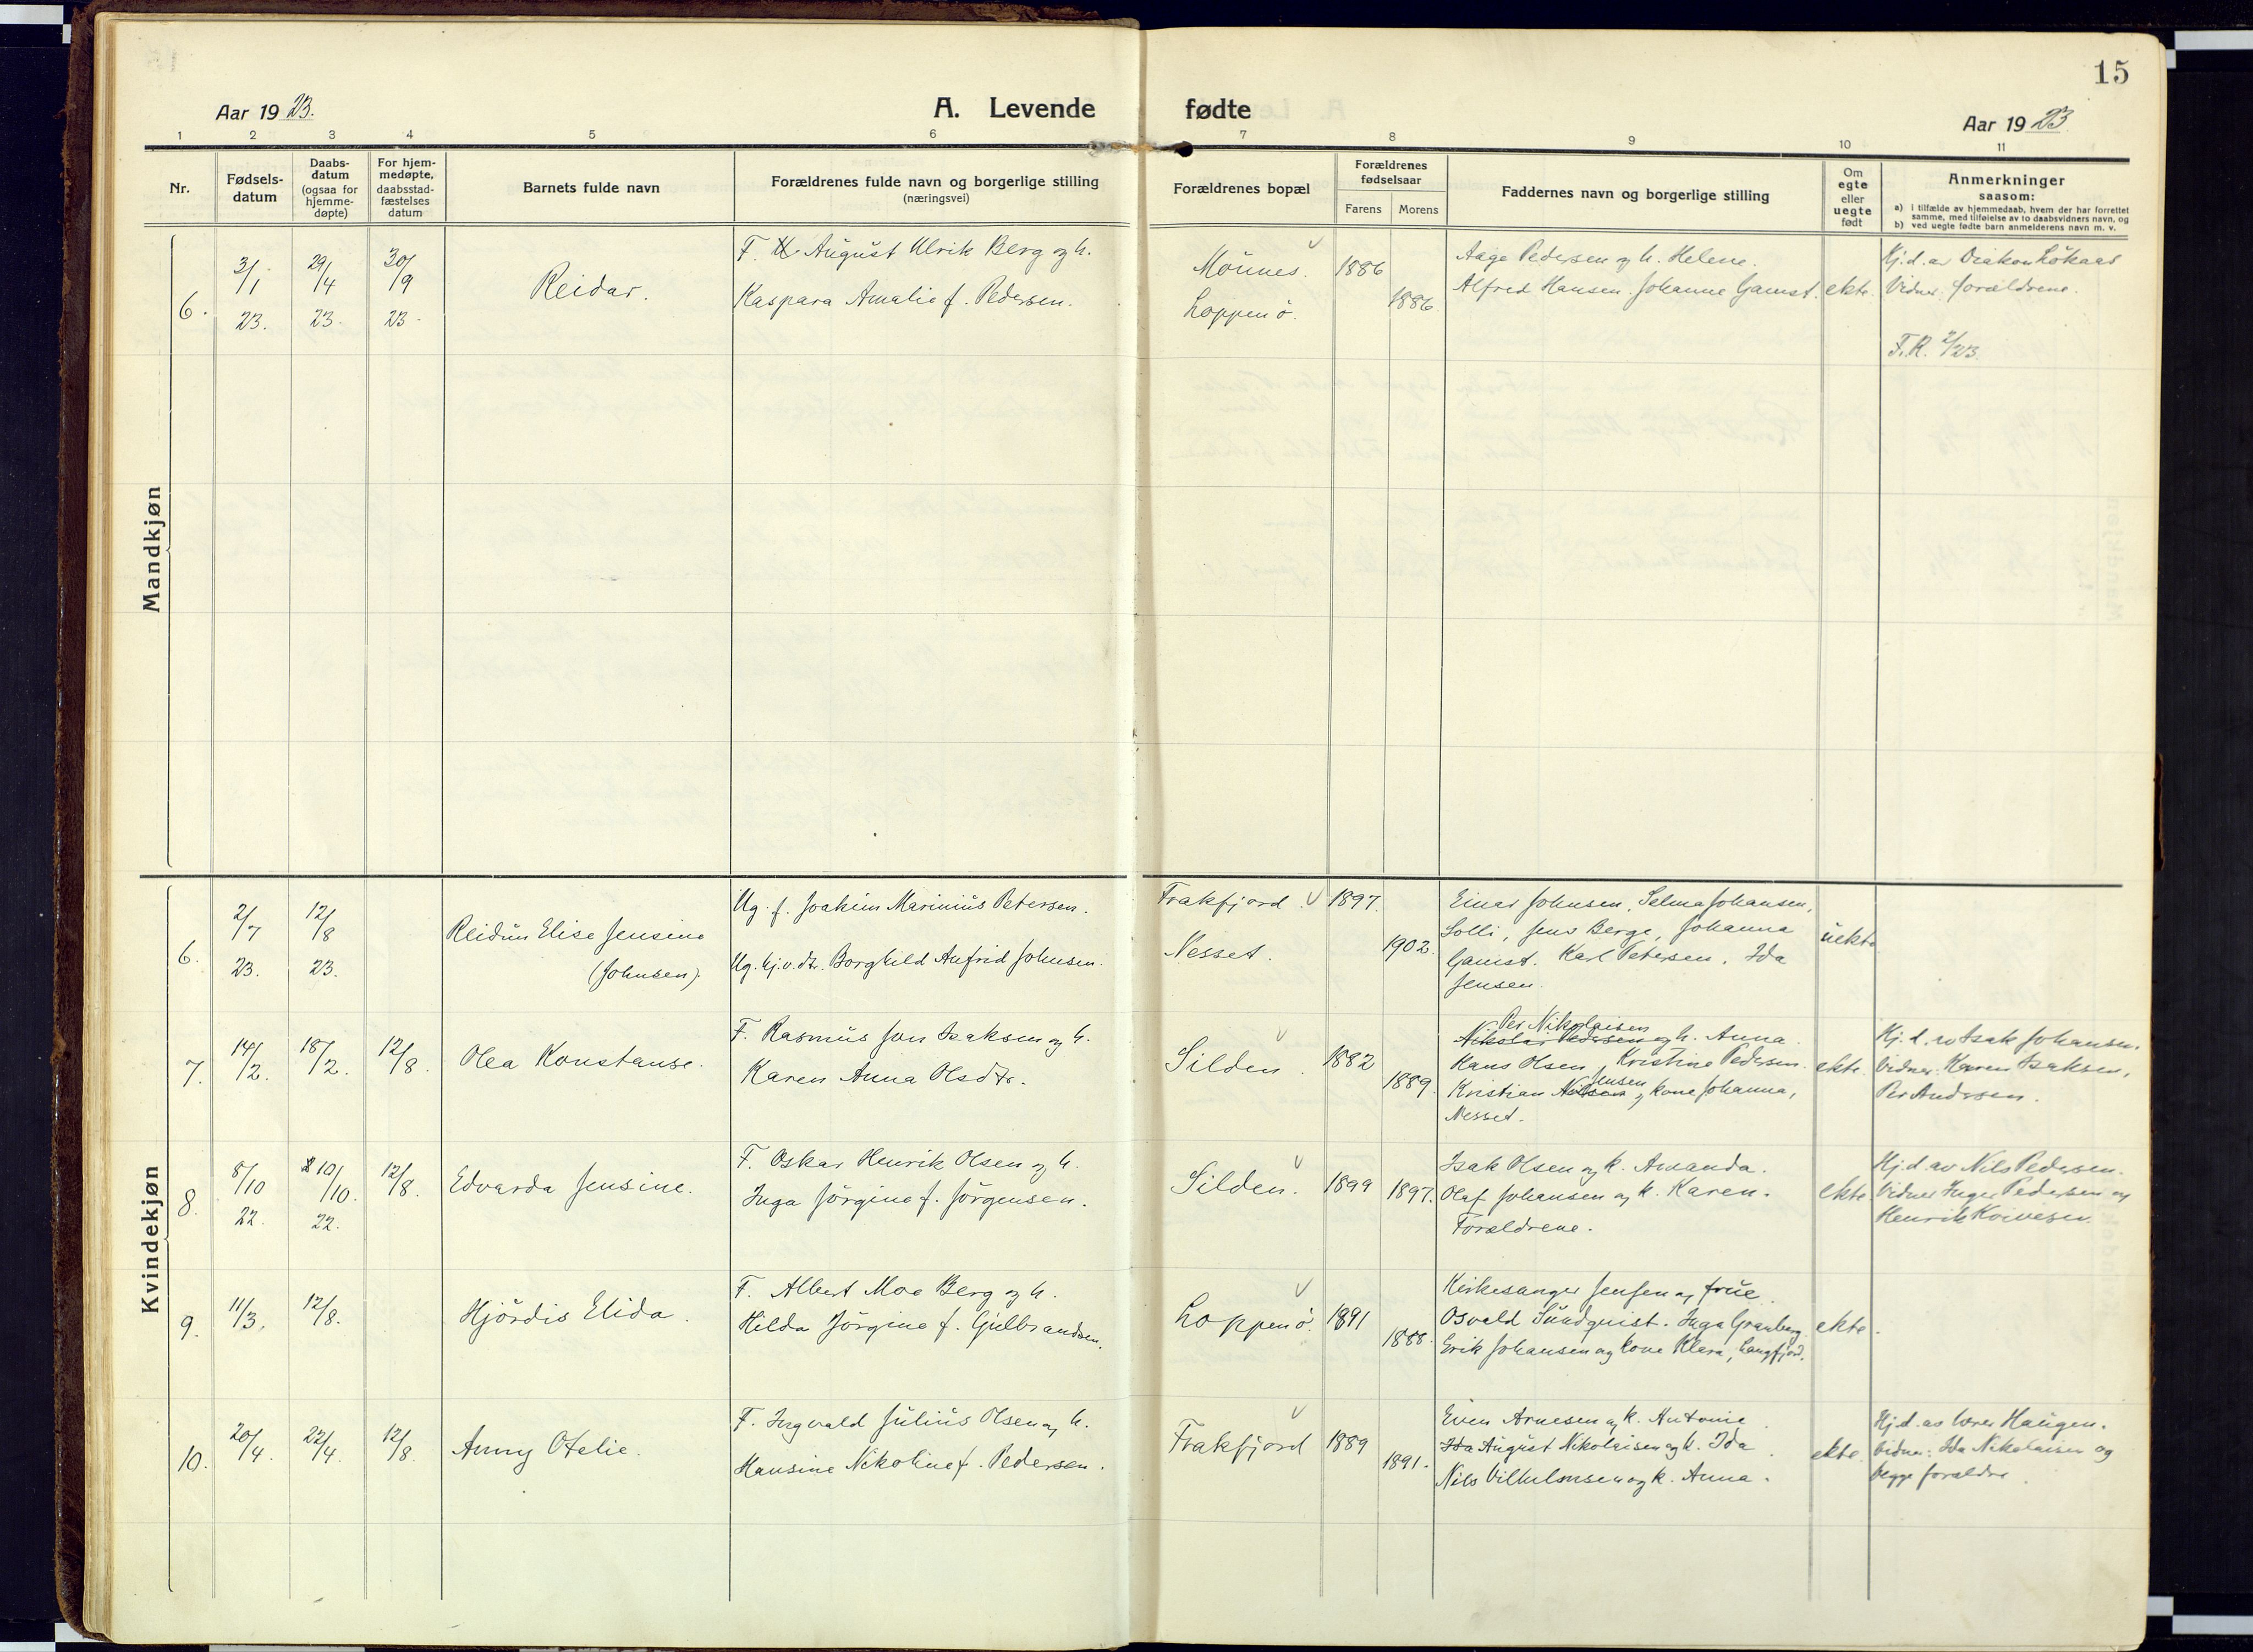 15
Aar 1923.
A. Levende fødte
Aar 1923
1 2 3 4 5 6 7 8 9 10 11
Nr.
Fødsels-
datum
Daabs-
datum
(ogsaa for
hjemme-
døpte)
For hjem-
medøpte,
daabsstad-
fæstelses
datum
Barnets fulde navn
Forældrenes fulde navn og borgerlige stilling
(næringsvei)
Forældrenes bopæl
Forældrenes
fødselsaar
Farens Morens
Faddernes navn og borgerlige stilling
Om
egte
eller
uegte
født
Anmerkninger
saasom:
a) i tilfælde av hjemmedaab, hvem der har forrettet
samme, med tilføielse av to daabsvidners navn, og
b) ved uegte fødte barn anmelderens navn m. v.
Mandkjøn
6.
3/1
23.
29/4
23.
30/9
23.
Reidar.
F. August Ulrik Berg og h.
Kaspara Amalie f. Pedersen.
Loppenö.
1886
1886
Aage Pedersen og h. Helene.
Alfred Hansen. Johanne Gamst.
ekte.
Hj.d. av Diakon Lökaas
Vidner: forældrene.
F.R. 2/23.
Kvindekjøn
6.
2/7
23.
12/8
23.
Reidun Elise Jensine
(Johnsen).
Ug. f. Joakim Marinius Petersen.
Ug. hj.v. dtr. Borghild Anfrid Johnsen.
Frakfjord.
Nesset.
1897.
1902.
Einar Johnsen, Selma Johansen,
Solli, Jens Berge, Johanna
Gamst. Karl Petersen, Ida
Jensen.
uekte
7.
14/2.
18/2.
12/8.
Olea Konstanse.
F. Rasmus Jon Isaksen og h.
Karen Anna Olsdtr.
Silden.
1882
1889.
Per Nikolaisen
Nikolai Pedersen og h. Anna.
Hans Olsen, Kristine Pedersen.
Jensen
Kristian Nilsen og kone Johanna,
Nesset.
ekte.
Hj. d. av Isak Johansen.
Vidner: Karen Isaksen,
Per Andersen.
8.
8/10
22.
10/10.
22.
12/8.
Edvarda Jensine.
F. Oskar Henrik Olsen og h.
Inga Jörgine f. Jörgensen.
Silden.
1899
1897.
Isak Olsen og k. Amanda.
Olaf Johansen og k. Karen.
Forældrene.
ekte
Hj.d. av Nils Pedersen.
Vidner Inger Pedersen og
Henrik
9.
11/3.
12/8.
Hjördis Elida.
F. Albert Moe Berg og h.
Hilda Jörgine f. Gulbrandsen.
Loppenö.
1891
1888.
Kirkesanger Jensen og frue.
Osvald Sundquist. Inga Granberg
Erik Johansen og kone Klara, Langfjord.
ekte.
10.
20/4.
22/4.
12/8.
Anny Otelie.
F. Ingvald Julius Olsen og h.
Hansine Nikoline f. Pedersen.
Frakfjord
1889
1891.
Even Arnesen og k. Antonie
Ida August Nikolaisen og k. Ida
Nils Vilhelmsen og k. Anna.
ekte.
Hj.d. av lærer Haugen.
Vidner: Ida Nikolaisen og
begge forældre.